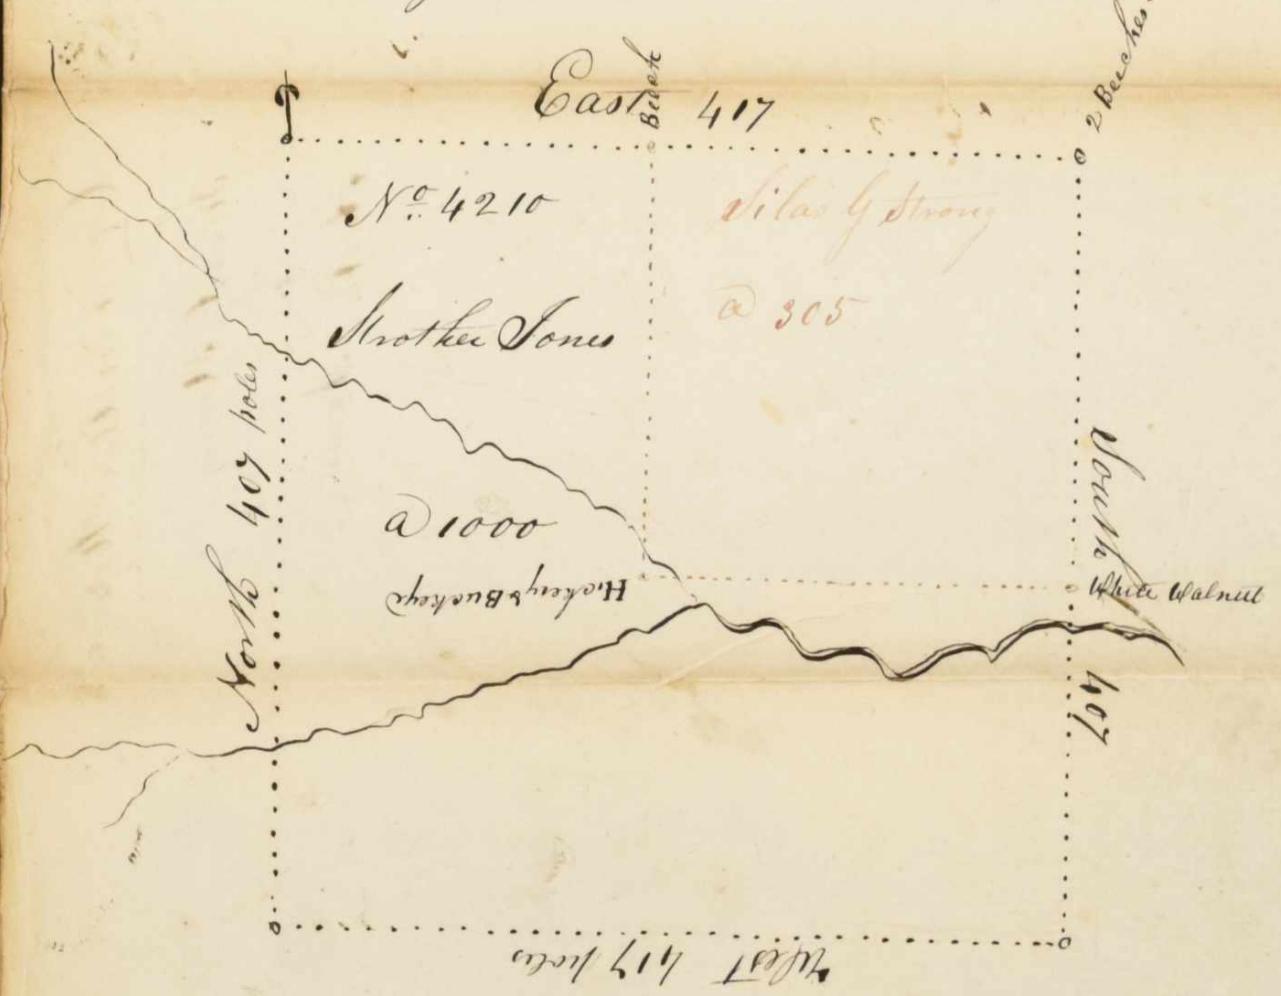 East 417
Beech
2 Beeches
No. 4210
Silas G Strong
a 305
Strother Jones
North 407 poles
a 1000
Hickery & Buckeye
South 407
White Walnut
West 417 poles